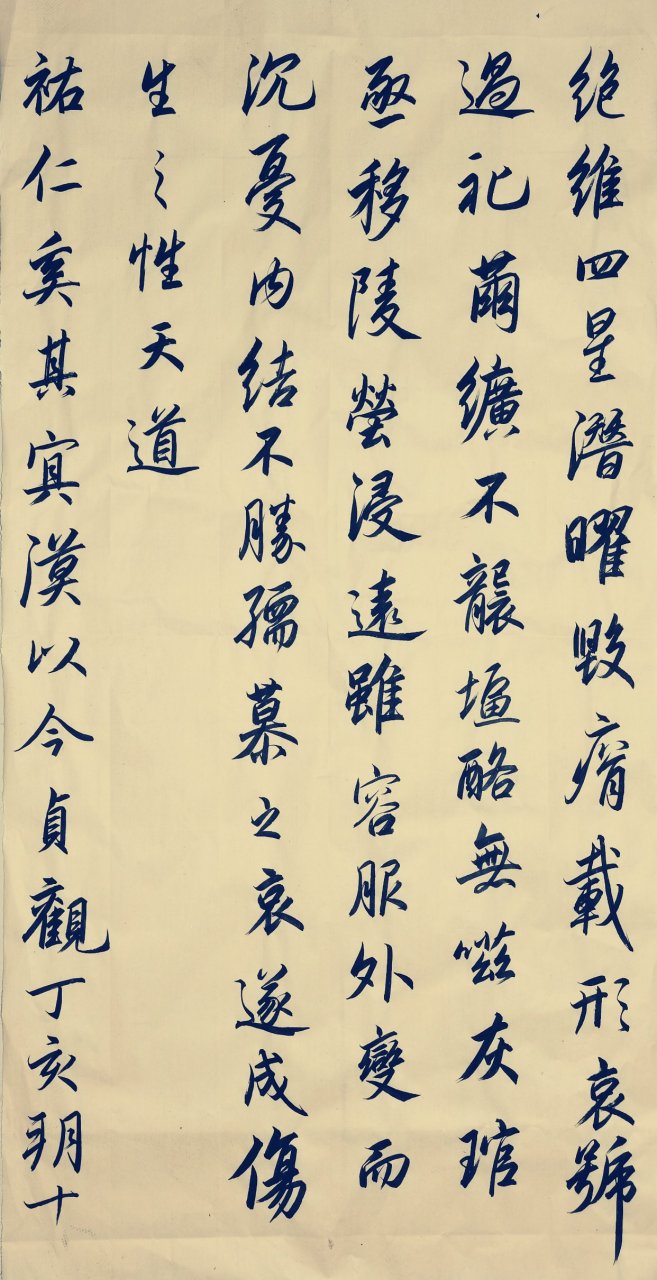 絶維四星潛曜毀瘠載形哀號
過祀繭纊不襲塩酪無嗞灰琯
亟移陵塋浸遠雖容服外變而
沉憂内結不勝孺慕之哀遂成傷
生之性天道
祐仁奚其寘漠以今貞觀丁亥玥十